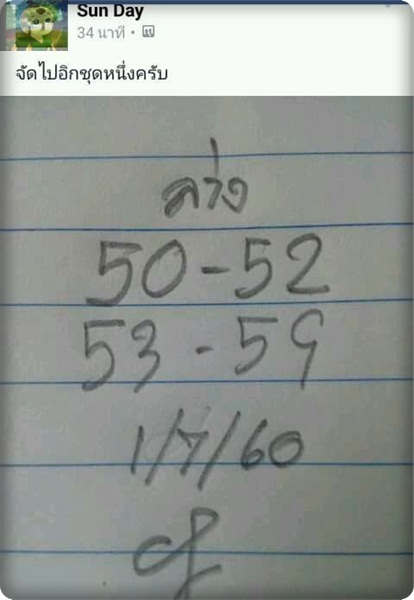 Sun Day
34 นาที
จัดไปอีกชุดหนึ่งครับ
ล่าง
50-52
53-59
1/7/60